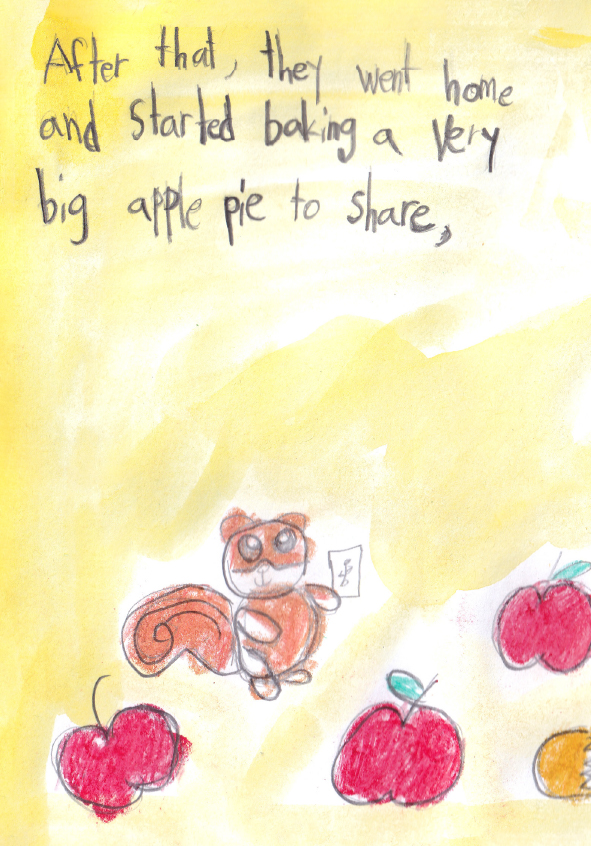 After that, they went home
and started baking a very
big apple pie to share,